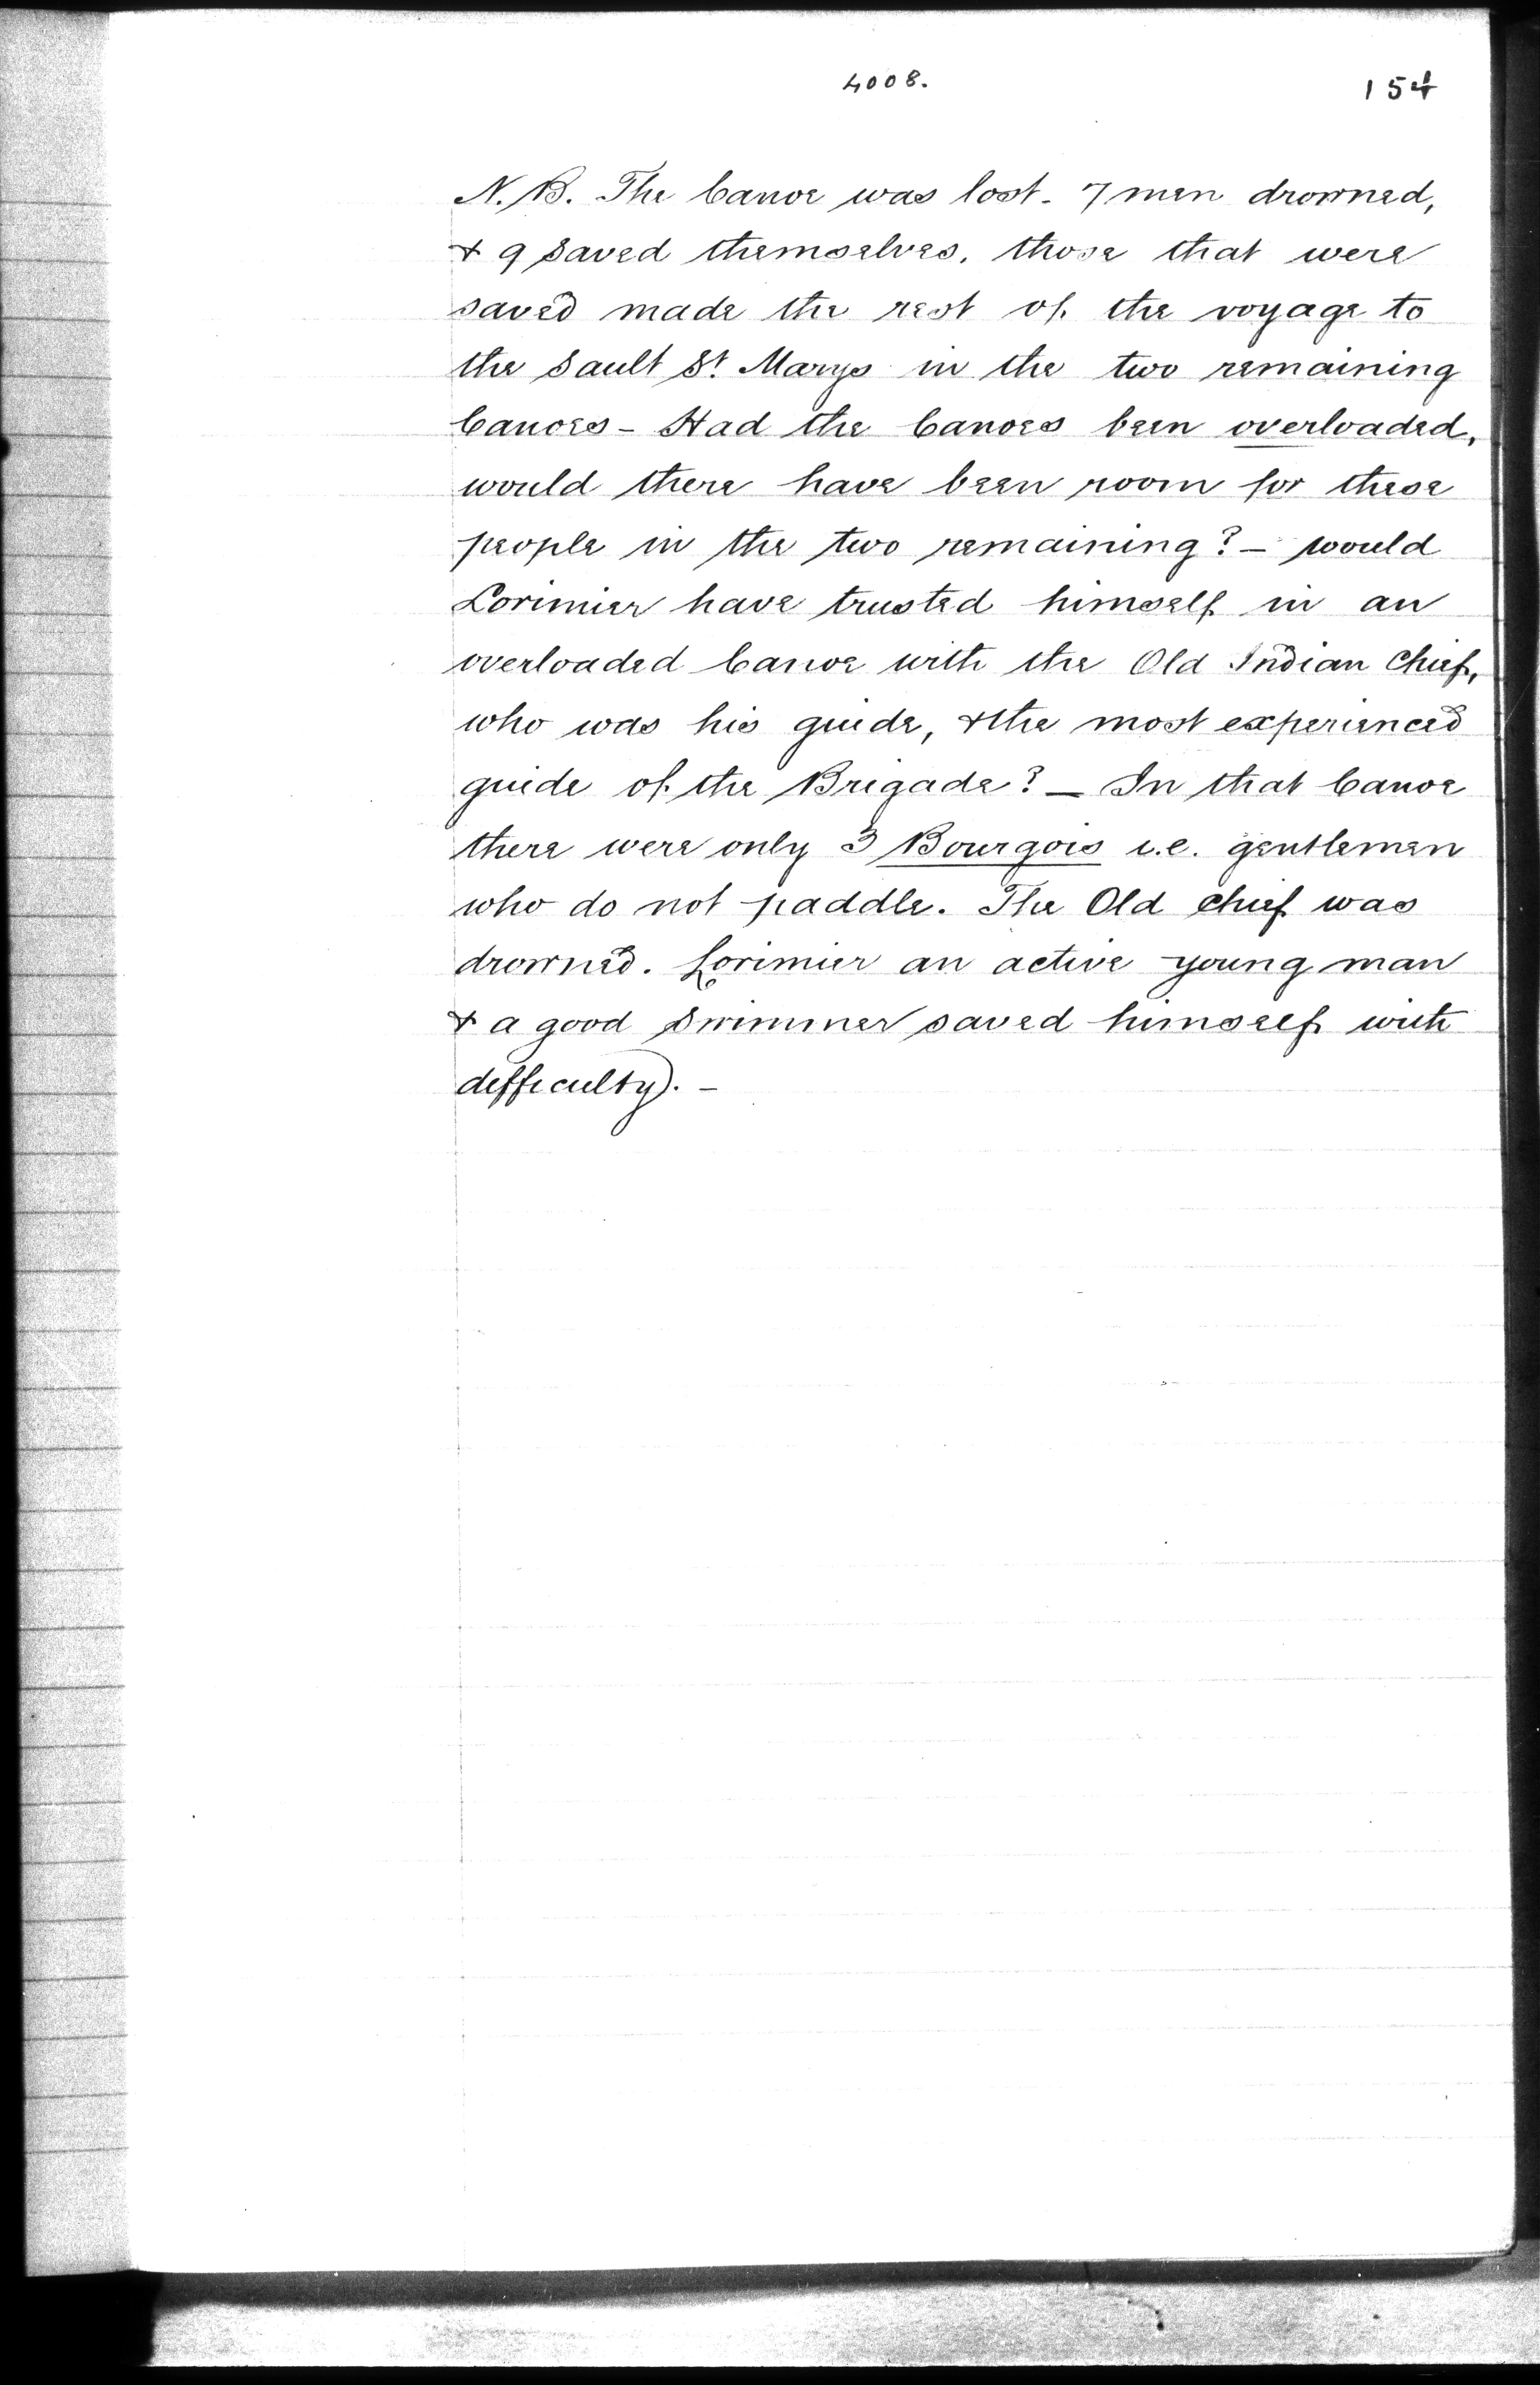 4008.
154
N.B. The Canoe was lost - 7 men drowned,
& 9 saved themselves, those that were
saved made the rest of the voyage to
the Sault St Marys in the two remaining
Canoes - Had the Canoes been overloaded,
would there have been room for these
people in the two remaining? - would
Lorimier have trusted himself in an
overloaded Canoe with the Old Indian Chief,
who was his guide, & the most experienced
guide of the Brigade? - In that Canoe
there were only 3 Bourgois i.e. gentlemen
who do not paddle. The Old Chief was
drowned. Lorimier an active young man
& a good Swimmer saved himself with
difficulty). -